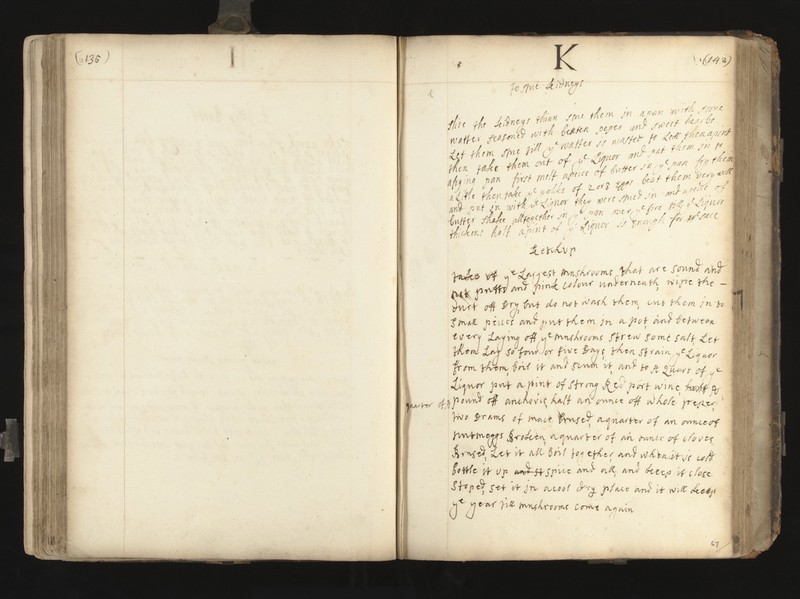 (136)
I
K
(142)
To stue Kidneys
slice the Kidneys thin stue them in a pan with some
watter seasoned with beaten peper and sweet hearbs
Let them stue till ye watter so waster to Less then a pint
then take them out of ye Liquor and put them in to
a frying pan first melt a peice of butter in ye pan fry them
a Little then take ye yolks of 2 or 3 eggs beat them very well
and put in with ye Liquor they were stued in and a peice of
butter shake alltogether in ye pan over ye fire till ye Liquor
thickens half a pint of ye Liquor is Enough for sauce
Ketchup
take of ye Largest mushrooms that are sound and
and pink colour underneath, wipe the
dust off Dry but do not wash them, cut them in to
smal peices and put them in a pot and between
every Laying off ye mushrooms strew some salt Let
them Lay so four or five Days, then strain ye Liquor
from them, boil it and scum it, and to Quart of ye
Liquor put a pint of strong Red port wine,
quarter of a pound off anchovis half an ounce off whole peper
two Drams of mace Brused, a quarter of an ounce of
nutmeggs Broken, a quarter of an ounce of cloves
Brused, Let it all Boil together, and when it is cold
Bottle it up spice and all, and keep it close
stoped, set it in a cool Dry place and it will keep
ye year till mushrooms come again
67